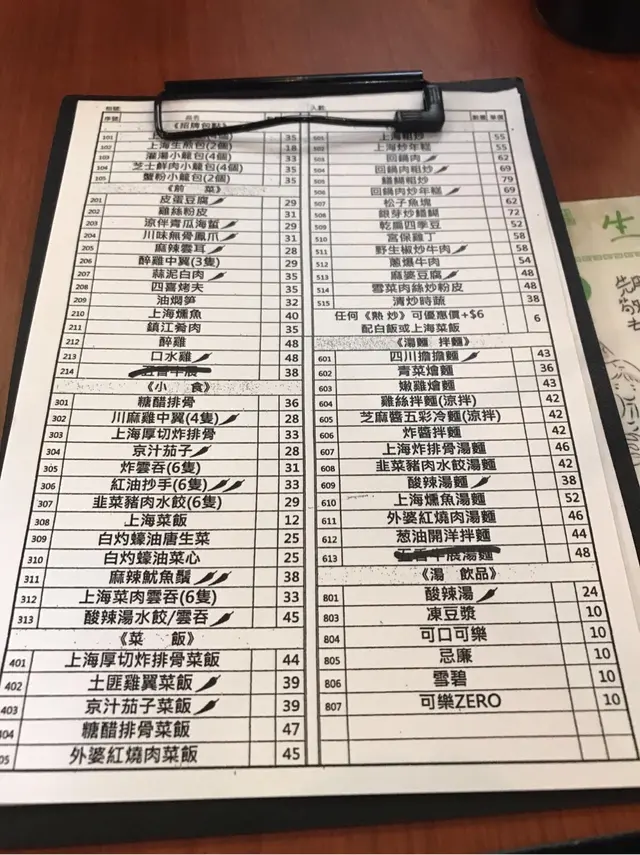 人數
序號 品名 數量 單價
《招牌包點》
101 35
102 上海生煎包(2個) 18
103 灌湯小籠包(4個) 33
104 芝士鮮肉小籠包(4個) 35
105 蟹粉小籠包(2個) 35
《前 菜》
201 皮蛋豆腐 29
202 雞絲粉皮 31
203 涼伴青瓜海蜇 29
204 川味無骨鳳爪 31
205 麻辣雲耳 28
206 醉雞中翼(3隻) 29
207 蒜泥白肉 35
208 四喜烤夫 35
209 油燜笋 32
210 上海燻魚 40
211 鎮江肴肉 35
212 醉雞 48
213 口水雞 48
214 38
《小 食》
301 糖醋排骨 36
302 川麻雞中翼(4隻) 28
303 上海厚切炸排骨 33
304 京汁茄子 28
305 炸雲吞(6隻) 31
306 紅油抄手(6隻) 33
307 韭菜豬肉水餃(6隻) 29
308 上海菜飯 12
309 白灼蠔油唐生菜 25
310 白灼蠔油菜心 25
311 麻辣魷魚鬚 38
312 上海菜肉雲吞(6隻) 33
313 酸辣湯水餃/雲吞 45
《菜 飯》
401 上海厚切炸排骨菜飯 44
402 土匪雞翼菜飯 39
403 京汁茄子菜飯 39
404 糖醋排骨菜飯 47
05 外婆紅燒肉菜飯 45
數量 單價
501 上海粗炒 55
502 上海炒年糕 55
503 回鍋肉 62
504 回鍋肉粗炒 69
505 鱔糊粗炒 79
506 回鍋肉炒年糕 69
507 松子魚塊 62
508 銀芽炒鱔糊 72
509 乾扁四季豆 52
510 宮保雞丁 58
511 野生椒炒牛肉 58
512 蔥爆牛肉 54
513 麻婆豆腐 48
514 雪菜肉絲炒粉皮 48
515 清炒時蔬 38
任何《熱炒》可優惠價+$6
配白飯或上海菜飯 6
《湯麵 拌麵》
601 四川擔擔麵 43
602 青菜燴麵 36
603 嫩雞燴麵 43
604 雞絲拌麵(涼拌) 42
605 芝麻醬五彩冷麵(涼拌) 42
606 炸醬拌麵 42
607 上海炸排骨湯麵 46
608 韭菜豬肉水餃湯麵 42
609 酸辣湯麵 38
610 上海燻魚湯麵 52
611 外婆紅燒肉湯麵 46
612 葱油開洋拌麵 44
613 湯麵 48
《湯 飲品》
801 酸辣湯 24
803 凍豆漿 10
804 可口可樂 10
805 忌廉 10
806 雪碧 10
807 可樂ZERO 10
生